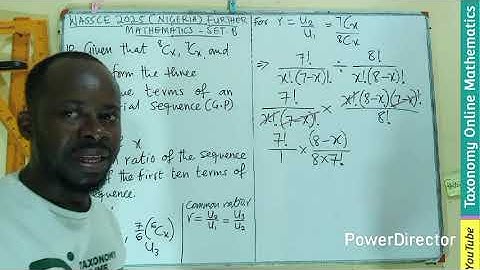 WASSCE 2025 (NIGERIA) FURTHER
MATHEMATICS - SET B
Given that ⁸Cx, ⁷Cx and
form the three
ue terms of an
ial sequence (G.P)
x
n ratio of the sequence
of the first ten terms of
quence.
7/6 (⁶Cx)
U₃
common ratio
r = U₂/U₁ = U₃/U₂
For r = U₂/U₁ = ⁷Cx/⁸Cx
⇒ 7!/x!(7-x)! ÷ 8!/x!(8-x)!
7!/x!(7-x)! × x!(8-x)(7-x)!/8!
7!/1 × (8-x)/8×7!
PowerDirector
TAXONOMY
YouTube Taxonomy Online Mathematics